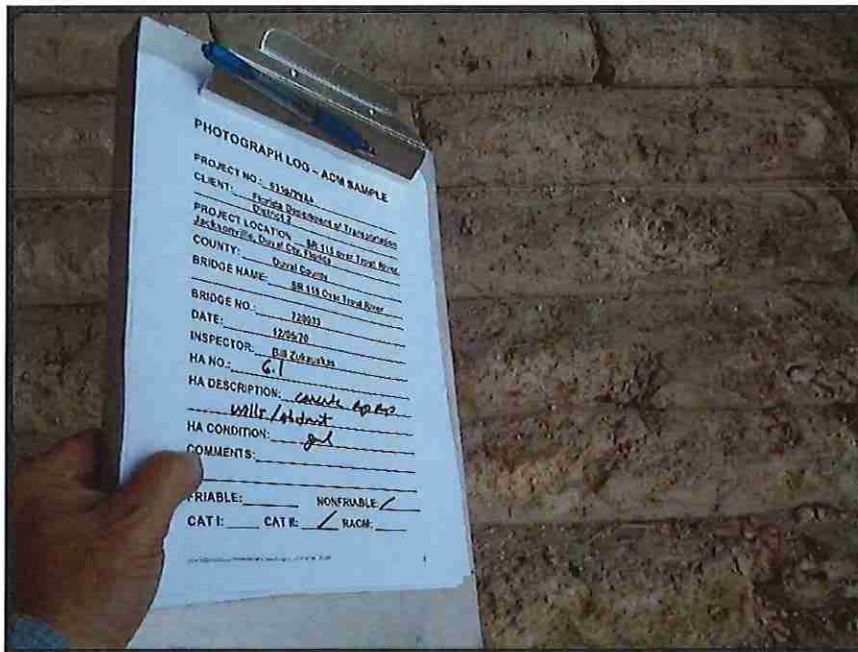 PHOTOGRAPH LOG – ACM SAMPLE
PROJECT NO.:
CLIENT: Florida Department of Transportation
District 2
PROJECT LOCATION: SR 115 over Trout River,
Jacksonville, Duval Cty, Florida
COUNTY: Duval County
BRIDGE NAME: SR 115 Over Trout River
BRIDGE NO.: 720033
DATE: 12/05/20
INSPECTOR: Bill Zukauskas
HA NO.: 6.1
HA DESCRIPTION: concrete rip rap
walls/
HA CONDITION:
COMMENTS:
FRIABLE: NONFRIABLE: /
CAT I: CAT II: / RACM:
1